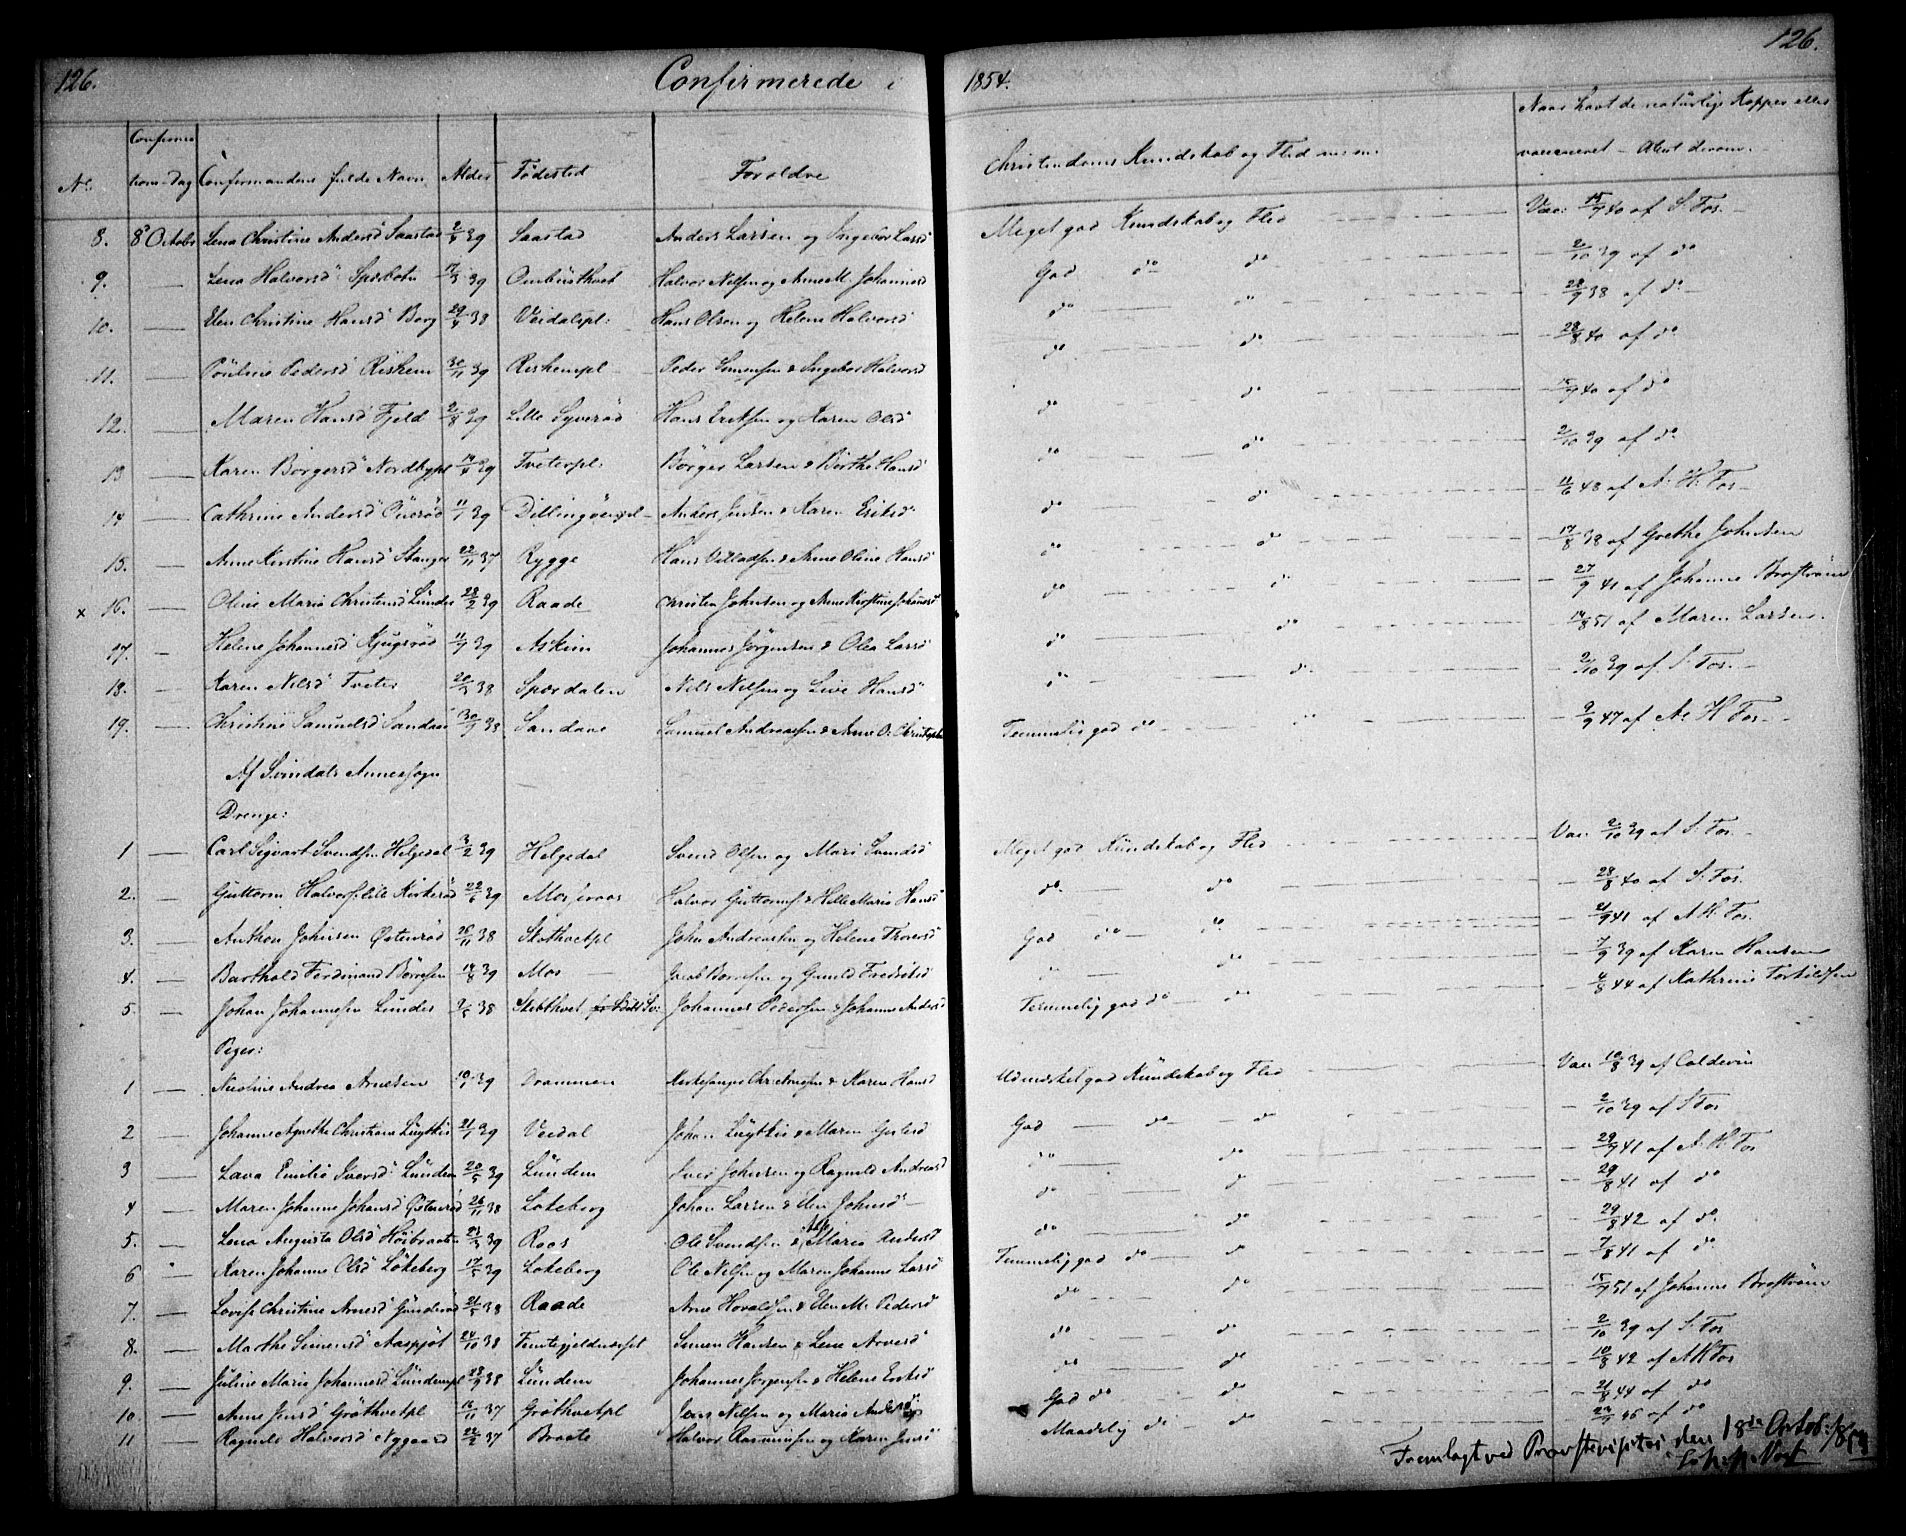 126.
Confirmerede i 1854.
126.
No. Confirmations-Dag Confirmandens fulde Navn Alder Fødested Forældre Christendoms Kundskab og Flid Naar havt de naturlige Kopper eller
vaccineret - Attest derom.
8. 8 Octobr Lena Christine Andersd Saastad 2/4 39 Saastad Anders Larsen og Ingebor Larsd Meget god Kundskab og Flid Vac: 40 af S. Fos.
9. — Lena Halvorsd Halvor Nilsen og Anne M. Johannesd God do do 2/10 39 af do
10. — Elen Christine Hansd Berg 29/4 38 Veidalspl: Hans Olsen og Helene Halvorsd do do 28/9 38 af do
11. — Pouline Pedersd Riskem 30/11 39 Riskempl Peder Simensen & Ingebor Halvorsd do do 28/8 40 af do
12. — Maren Hansd Fjeld 2/8 39 Lille Syverød Hans Eriksen og Karen Olsd do do 40 af do
13 — Karen Børgersd Nordbypl 39 Tveterpl: Børger Larsen & Birthe Hansd do do 2/10 39 af do
14 — Cathrine Andersd 39 Anders Jensen & Karen Eriksd do do 11/6 48 af A. H. Fos
15. — Anne Kirstine Hansd Stanger 22/11 37 Rygge Hans Villadsen & Anne Oline Hansd do do 17/8 38 af Grethe Johnsen
x 16. — Oline Maria Christensd Lundes 28/2 39 Raade Christen Johnsen og Anne Kirstine Johansd do do 27/9 41 af Johanne Brostrøm
17. — Helene Johannesd 39 Askim Johannes Jørgensen & Olea Larsd do do 14/8 51 af Maren Larsen.
18. — Karen Nilsd Tveter 20/3 38 Spærdalen Nils Nilsen og Live Hansd do do 2/10 39 af S. Fos.
19. — Christine Samuelsd Sandaa 38 Sandaae Samuel Andreassen & Anne O. Christoph Temmelig god do do 9/9 47 af A. H Fos
Af Svindals Annexsogn
Drenge:
1 — Carl Sigvart Svendsen Helgedal 3/2 39 Helgedal Svend Olsen og Mari Svendsd Meget god Kundskab og Flid Vac. 2/10 39 af S. Fos.
2. — Guttorm Halvorsen lille Kirkerød 22/6 39 Halvor Guttormsen & Helle Maria Hansd do. do 28/8 40 af S. Fos.
3. — Anthon Johnsen Østenrød 26/11 38 John Andreassen og Helene God do do 2/9 41 af A H. Fos.
4. — Barthold Ferdinand Børresen 14/8 39 Mos Jacob Børresen og Gunild Fredriksd do do 7/9 39 af Karen Hansen
5 — Johan Johannesen Lundes 38 Johannes Pedersen & Johanne Andersd Temmelig god do do 4/8 44 af Kathrine Torkildsen
Piger:
1 — Nicoline Andrea Arnesen 39 Drammen Kirkesanger Chr. Arnesen & Karen Hansd Udmærket god Kundskab og Flid Vac 10/8 39 af Coldevin
2 — Johanne Agnethe Christiane 39 Veidal Johan & Maren God do do 2/10 39 af S Fos
3 — Lava Emilie Iversd Lundem 20/5 39 Lundem Iver Johnsen og Ragnild Andreasd do do 29/9 41 af A. H. Fos
4 — Maren Johanne Johansd Østenrød 26/11 38 Løkeberg Johan Larsen & Elen Johnsd do do 29/8 41 af do
5. — Lena Augusta Olsd Høibraaten 23/3 39 Roos Ole Svendsen & Maria Andersd do do 29/8 42 af do.
6 Karen Johanne Olsd Løkeberg 17/5 39 Løkeberg Ole Nilsen og Maren Johanne Larsd Temmelig god do do 7/8 41 af do.
7. — Lovise Christine Arnesd 21/5 38 Raade Arne Hovalsen & Elen M. Pedersd do do 15/9 51 af Johanne Brostrøm
8. — Marthe Simensd Aaspjøt 24/10 38 Simen Hansen & Lene Arvesd do do 2/10 39 af S. Fos
9. — Juline Marie Johannesd Lundempl 28/9 38 Lundem Johannes Jørgensen & Helene Eriksd do do 10/8 42 af A H Fos
10. — Anne Jensd Grøthvetpl 37 Grøthvetpl Jens Nilsen og Maria Andersd God do do 44 af do
11 — Ragnild Halvorsd Nygaard 22/2 37 Braate Halvor Rasmussen og Karen Jensd Maadelig do do 46 af do
Fremlagt ved Provstevisitas den 18de Octob: 1854